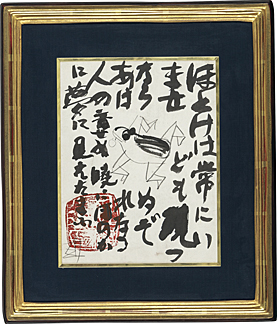 ほとけは常にい
ませども現つ
ならぬぞ
あはれなる
人の音せぬ暁にほのか
に夢に見えたまふ